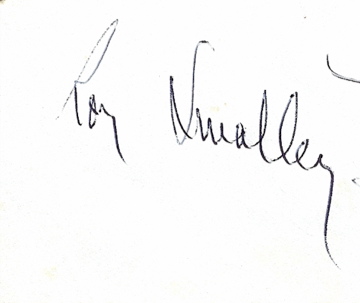 Roy Smalley